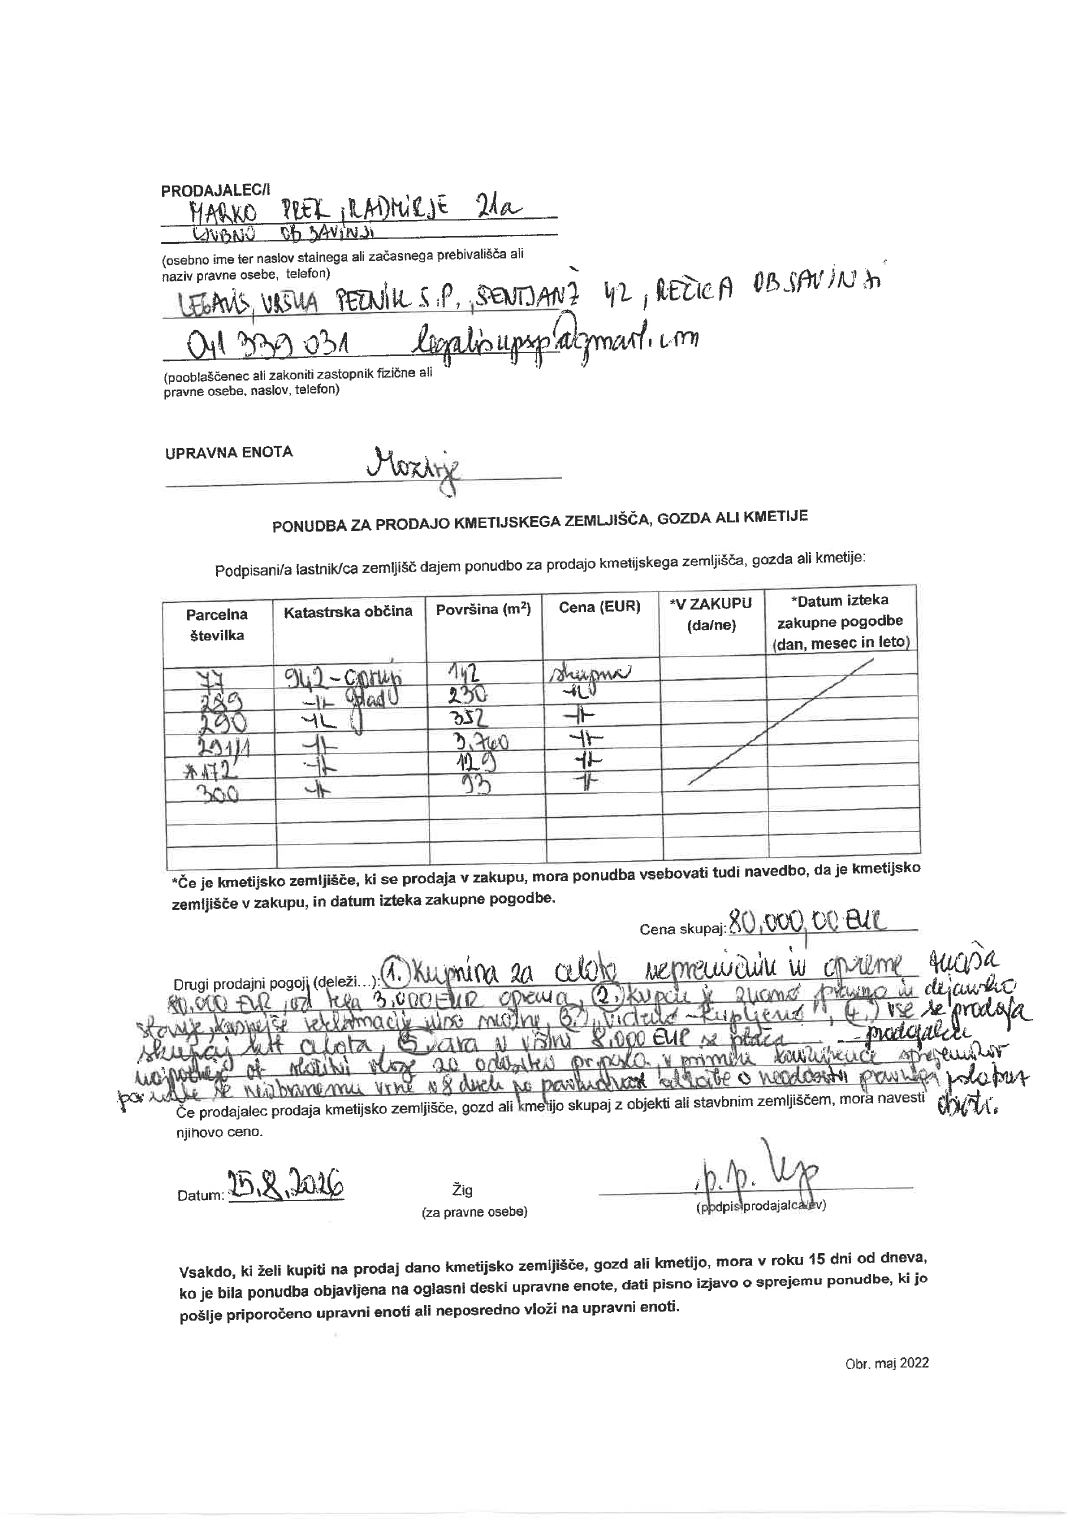 PRODAJALEC/I
MARKO PREK, RADMIRJE 21a
LJUBNO OB SAVINJI
(osebno ime ter naslov stalnega ali začasnega prebivališča ali
naziv pravne osebe, telefon)
LEGALIS, URŠKA PEČNIK S.P., ŠENTJANŽ 42, REČICA OB SAVINJI
041 339 031 legalisupsp@gmail.com
(pooblaščenec ali zakoniti zastopnik fizične ali
pravne osebe, naslov, telefon)
UPRAVNA ENOTA Mozirje
PONUDBA ZA PRODAJO KMETIJSKEGA ZEMLJIŠČA, GOZDA ALI KMETIJE
Podpisani/a lastnik/ca zemljišč dajem ponudbo za prodajo kmetijskega zemljišča, gozda ali kmetije:
Parcelna številka Katastrska občina Površina (m²) Cena (EUR) *V ZAKUPU (da/ne) *Datum izteka zakupne pogodbe (dan, mesec in leto)
77 942 - 142 skupna
289 -II- 230 -II-
290 -II- 352 -II-
291/1 -II- 3.760 -II-
*172 -II- 129 -II-
300 -II- 93 -II-
*Če je kmetijsko zemljišče, ki se prodaja v zakupu, mora ponudba vsebovati tudi navedbo, da je kmetijsko
zemljišče v zakupu, in datum izteka zakupne pogodbe.
Cena skupaj: 80.000,00 EUR
Drugi prodajni pogoji (deleži...): (1.) Kupnina za celoto nepremičnin in opreme znaša
80.000 EUR, od tega 3.000 EUR oprema, (2.) kupcu je znano pravno in dejansko
stanje, kasnejše reklamacije niso možne, (3.) "videno - kupljeno", (4.) vse se prodaja
skupaj kot celota, (5.) ara v višini 8.000 EUR se plača prodajalcu
vloge za odobritev pravnega posla, v primeru konkurence sprejemnikov
ponudbe se neizbranemu vrne v 8 dneh po odločbe o neodobritvi pravnega posla
Če prodajalec prodaja kmetijsko zemljišče, gozd ali kmetijo skupaj z objekti ali stavbnim zemljiščem, mora navesti
njihovo ceno.
Datum: 25.8.2026 Žig p.p.
(za pravne osebe) (podpis prodajalca/ev)
Vsakdo, ki želi kupiti na prodaj dano kmetijsko zemljišče, gozd ali kmetijo, mora v roku 15 dni od dneva,
ko je bila ponudba objavljena na oglasni deski upravne enote, dati pisno izjavo o sprejemu ponudbe, ki jo
pošlje priporočeno upravni enoti ali neposredno vloži na upravni enoti.
Obr. maj 2022